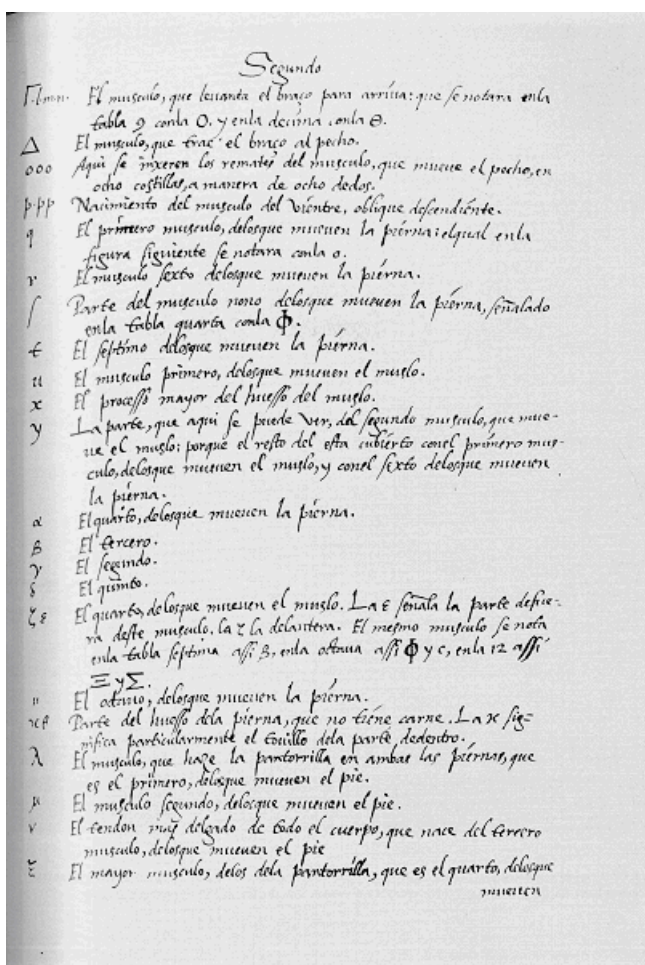 Segundo
Γ.l.m.n. El musculo, que leuanta el braço para arriua: que se notara enla
tabla 9 conla O. y enla decima conla Θ.
Δ El musculo, que trae el braço al pecho.
ooo Aqui se inxeren los remates del musculo, que mueue el pecho, en
ocho costillas, a manera de ocho dedos.
p.pp Nacimiento del musculo del vientre, oblique descendiente.
q El primero musculo, delosque mueuen la pierna: elqual enla
figura siguiente se notara conla o.
r El musculo sexto delosque mueuen la pierna.
ſ Parte del musculo nono delosque mueuen la pierna, señalado
enla tabla quarta conla Φ.
t El septimo delosque mueuen la pierna.
u El musculo primero, delosque mueuen el muslo.
x El processo mayor del huesso del muslo.
y La parte, que aqui se puede ver, del segundo musculo, que mue-
ue el muslo: porque el resto del esta cubierto conel primero mus-
culo, delosque mueuen el muslo, y conel sexto delosque mueuen
la pierna.
α El quarto, delosque mueuen la pierna.
β El tercero.
γ El segundo.
El quinto.
ζ ε El quarto, delosque mueuen el muslo. La ε señala la parte defue-
ra deste musculo, la ζ la delantera. El mesmo musculo se nota
enla tabla septima assi β, enla octaua assi Φ y c, enla 12 assi
Ξ y Σ.
El octauo, delosque mueuen la pierna.
Parte del huesso dela pierna, que no tiene carne. La ϰ sig-
nifica particularmente el touillo dela parte dedentro.
λ El musculo, que haze la pantorrilla en ambas las piernas, que
es el primero, delosque mueuen el pie.
μ El musculo segundo, delosque mueuen el pie.
ν El tendon muy delgado de todo el cuerpo, que nace del tercero
musculo, delosque mueuen el pie
ξ El mayor musculo, delos dela pantorrilla, que es el quarto, delosque
mueuen